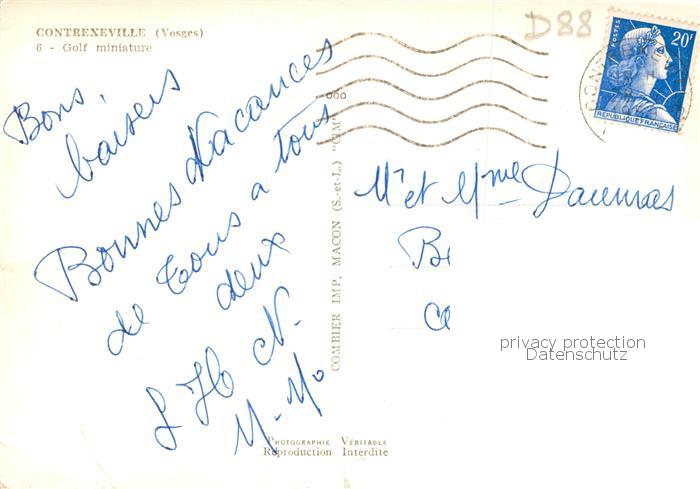 CONTREXEVILLE (Vosges)
6 - Golf miniature
D88
POSTES
20F
REPUBLIQUE FRANÇAISE
Bons
baisers
Bonnes Vacances
de Tous a tous
deux
J H N.
M-Mo
COMBIER IMP. MACON (S.-et-L.) "CIM"
Mr et Mme Daumas
Be
Co
privacy protection
Datenschutz
PHOTOGRAPHIE VÉRITABLE
Reproduction Interdite